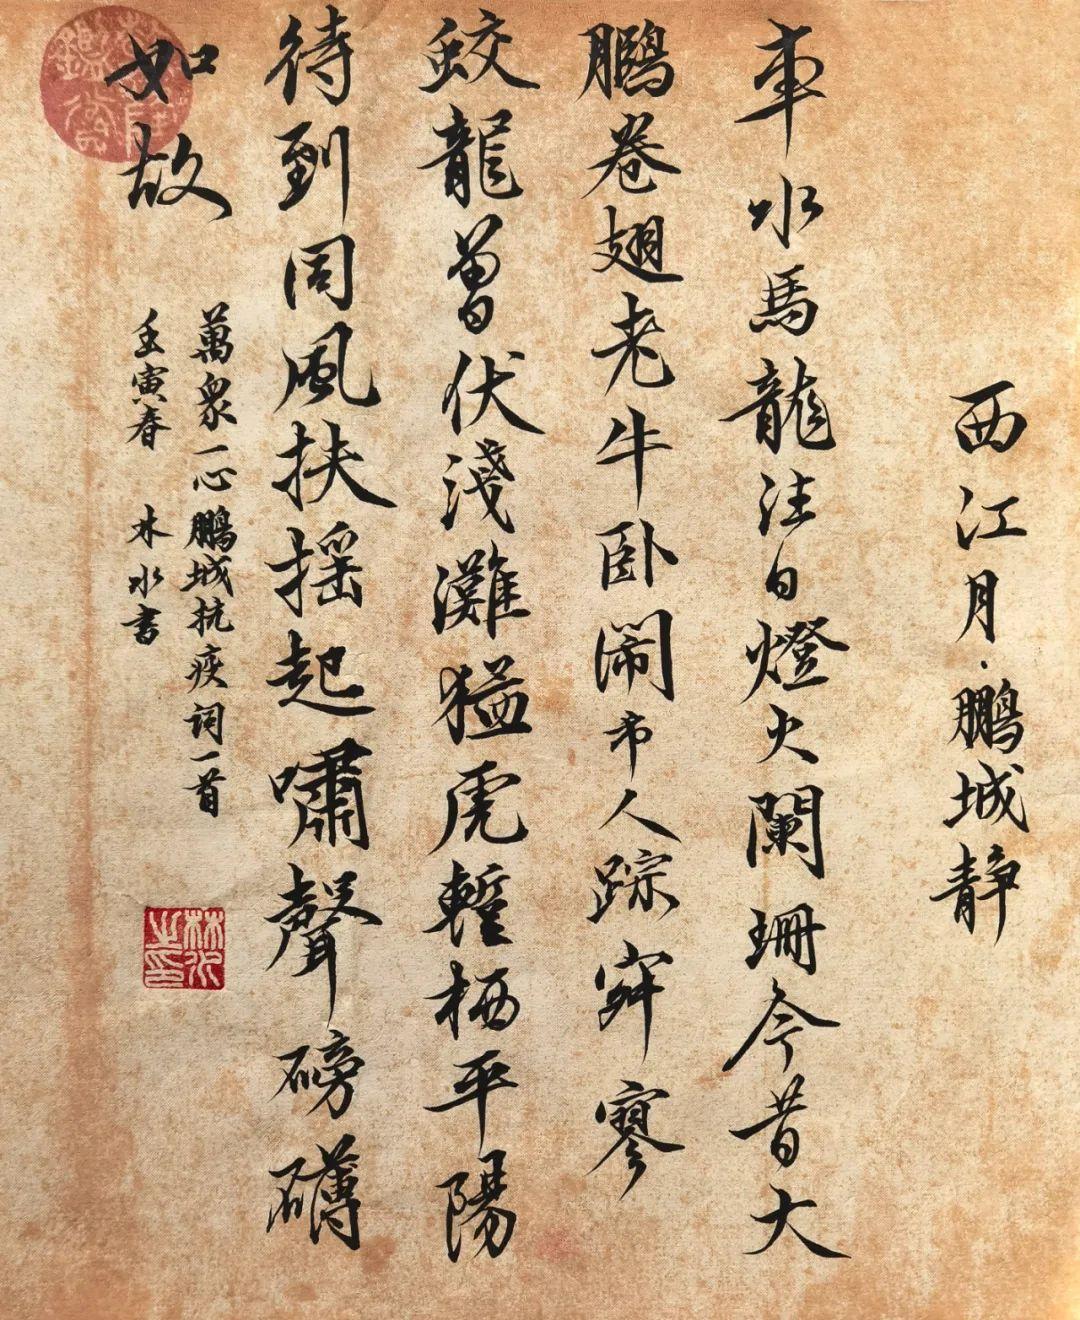 西江月·鹏城静
車水馬龍注日燈火闌珊今昔大
鵬卷翅老牛卧鬧市人踪穽寥
蛟龍曾伏淺灘猛虎暫栖平陽
待到同風扶摇起嘯聲磅礴
如故
萬衆一心鵬城抗疾词一首
壬寅春 林水書